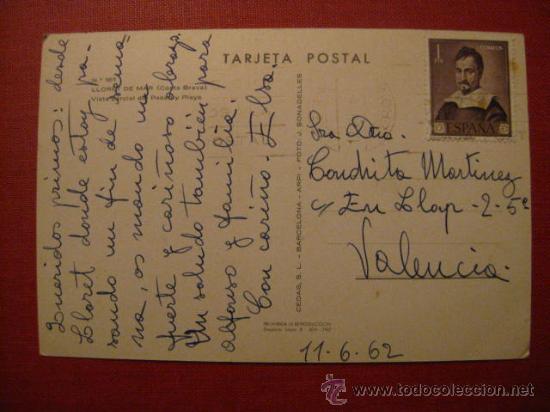 TARJETA POSTAL
N.º 
LLORET DE MAR (Costa Brava)
Vista parcial del Paseo y Playa
Queridos primos: desde
Lloret donde estoy pa-
sando un fin de sema
na, os mando un
fuerte y cariñoso abrazo.
Un saludo también para
Alfonso y familia.
Con cariño. Elsa.
CEDAG, S. L. - BARCELONA - ARPI - FOTO: J. SONADELLES
PROHIBIDA LA REPRODUCCION
CORREOS
ESPAÑA
Sra Dña.
Conchita Martinez
c/ En Llop - 2 - 5ª
Valencia.
11-6-62
www.todocoleccion.net